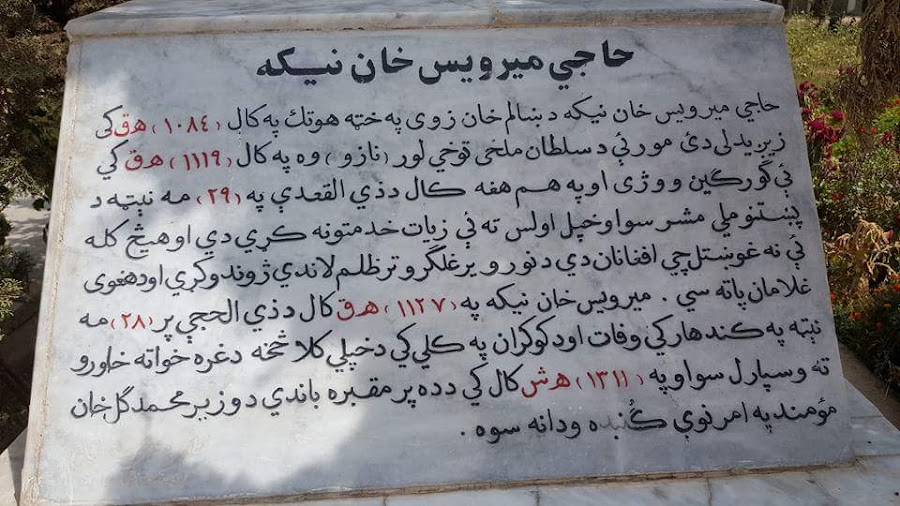 حاجي ميرويس خان نيکه
حاجي ميرويس خان نيکه د ښالم خان زوی په خټه هوتک په کال (١٠٨٤) هـق کی
زېږيدلی دئ مورئې د سلطان ملخی توخي لور (نازو) وه په کال (١١١٩) هـق کي
ئې گورگين و وژی او په هم هغه کال د ذي القعدې په (٢٩) مه نېټه د
پښتنو ملي مشر سو او خپل اولس ته ئې زيات خدمتونه کړي دي او هيڅ کله
ئې نه غوښتل چي افغانان دي د نورو يرغلگرو تر ظلم لاندي ژوند وکړي او د هغوی
غلامان پاته سي . ميرويس خان نيکه په (١١٢٧) هـق کال د ذي الحجې پر (٢٨) مه
نېټه په کندهار کي وفات او د کوکران په کلي کي د خپلي کلا څخه د غره خواته خاورو
ته وسپارل سو او په (١٣١١) هـش کال کي د ده پر مقبره باندي د وزير محمد گل خان
مؤمند په امر نوې گُنبده ودانه سوه .